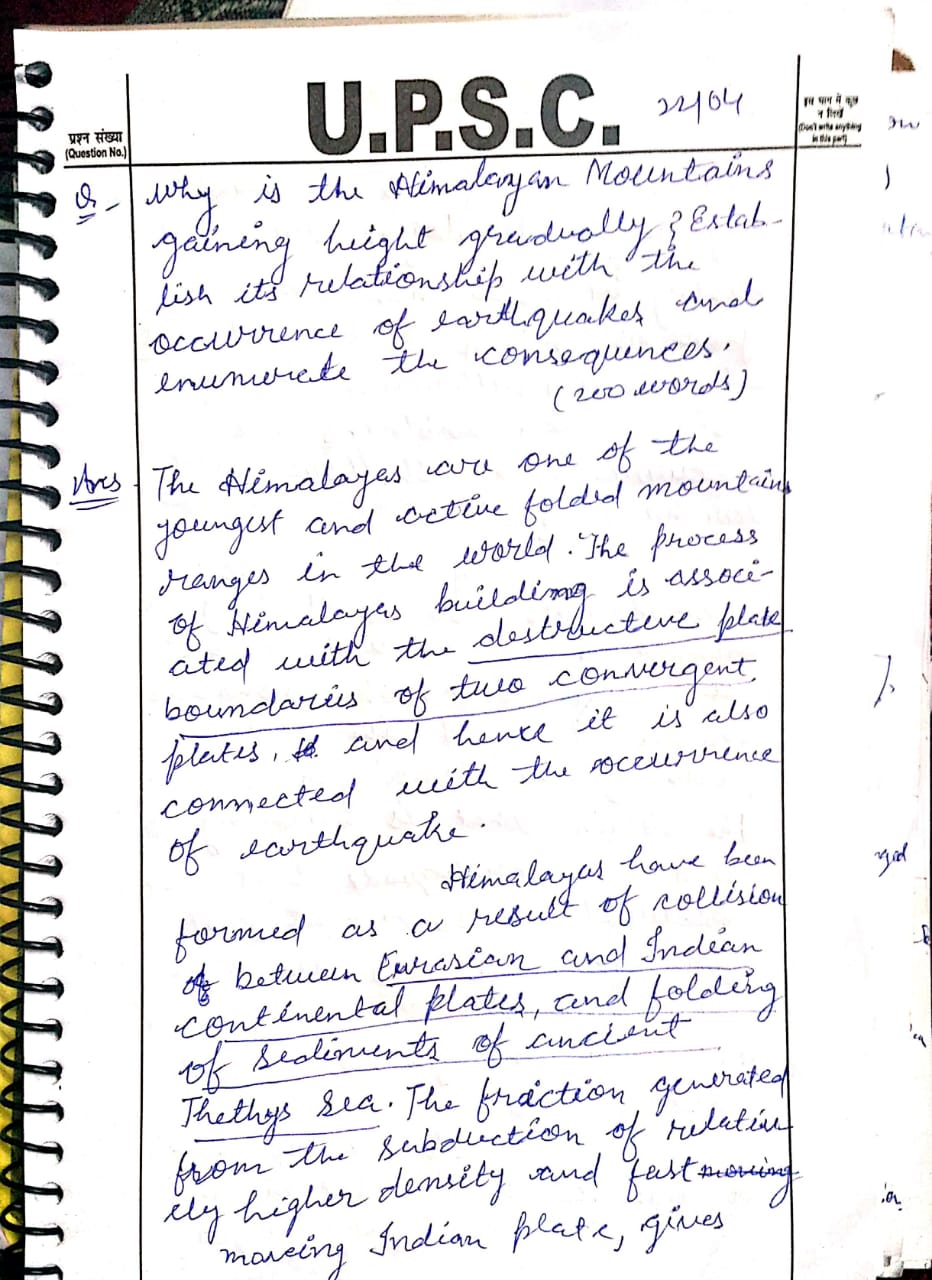 U.P.S.C.
22/04
प्रश्न संख्या
(Question No.)
इस भाग में कुछ
न लिखें
(Don't write anything
in this part)
Q - Why is the Himalayan Mountains
gaining height gradually? Estab-
lish its relationship with the
occurrence of earthquakes and
enumerate the consequences.
(200 words)
Ans - The Himalayas are one of the
youngest and active folded mountains
ranges in the world. The process
of Himalayas building is associ-
ated with the destructive plate
boundaries of two convergent
plates, and hence it is also
connected with the occurrence
of earthquake.
Himalayas have been
formed as a result of collision
between Eurasian and Indian
continental plates, and folding
of sediments of ancient
Thethys Sea. The fraction generated
from the subduction of relativ
ely higher density and fast moving
moveing Indian plate, gives